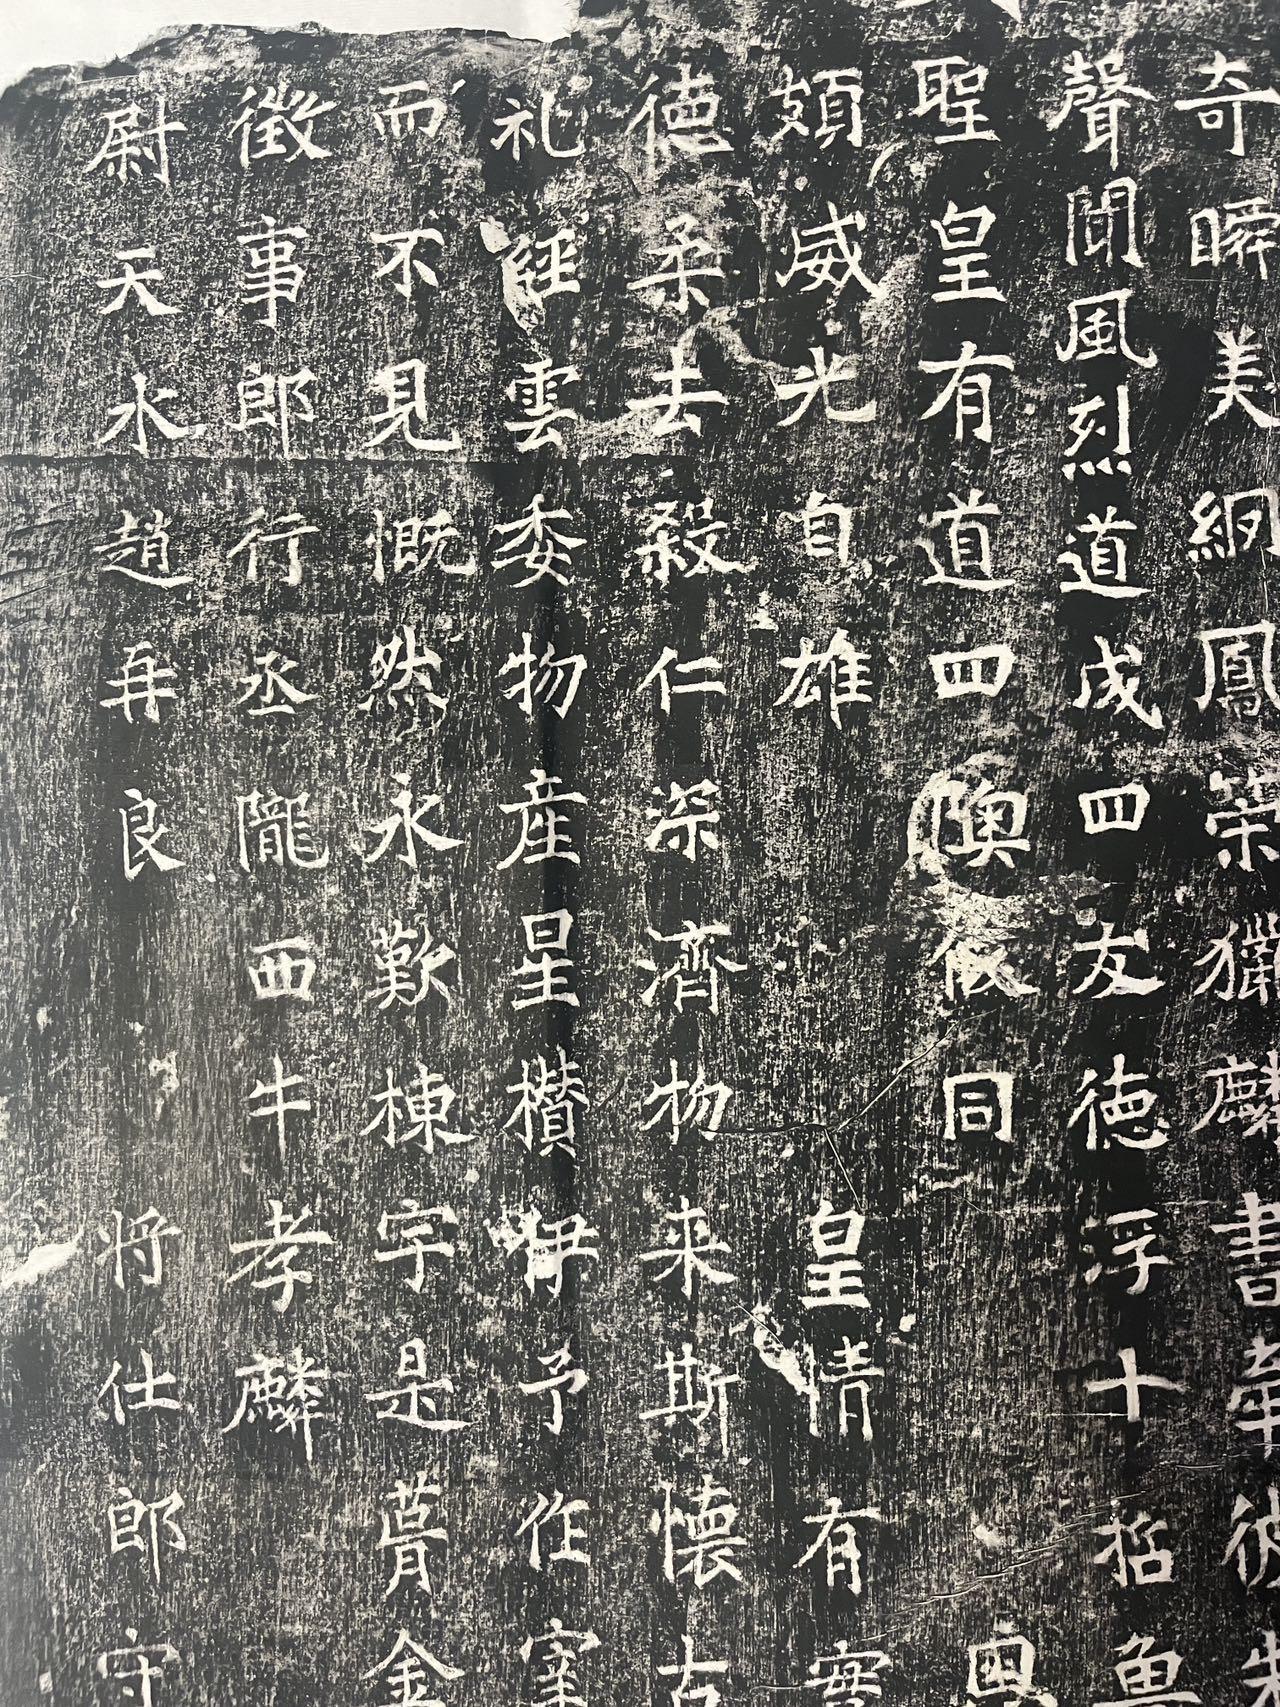 奇瞬美網鳳築獵麟書
聲聞風烈道成四友德浮十
聖皇有道四隩攸同
頞威光自雄 皇情有
德柔去殺仁深濟物来斯懷古
礼経雲委物産星櫕伊予作
而不見慨然永歎棟宇是蓂金
徵事郎行丞隴西牛孝麟
尉天水趙冉良 将仕郎守